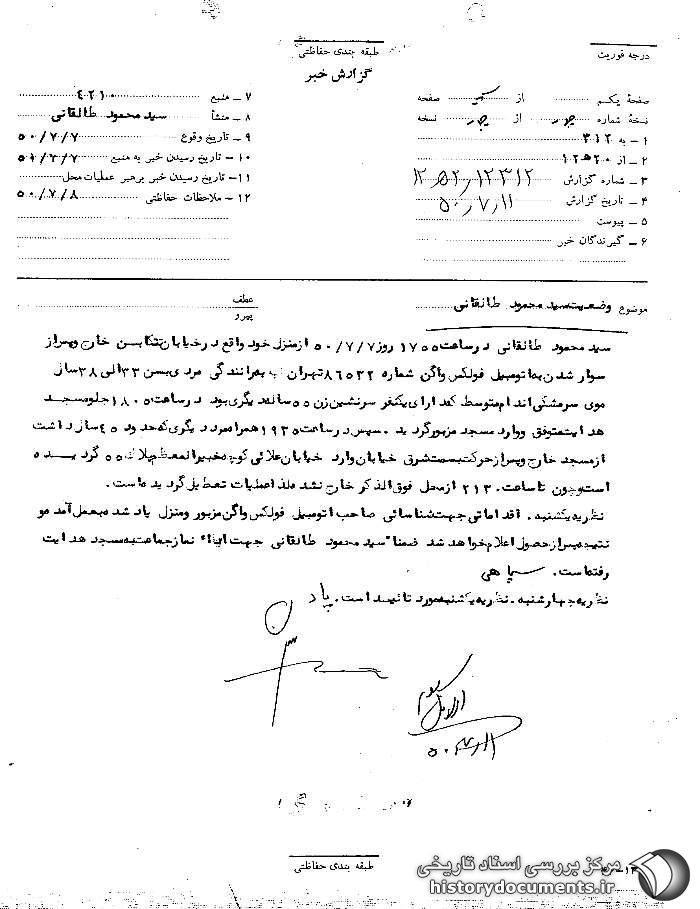 درجه فوریت
طبقه بندی حفاظتی
گزارش خبر
صفحهٔ یکم از یک صفحه
نسخهٔ شماره چهار از چهار نسخه
۱ - به ۳۱۲
۲ - از ۲۰ ه ۱۲
۳ - شماره گزارش ۱۲۳۱۲ / ۲۰ ه ۱۲
۴ - تاریخ گزارش ۵۰٫۷٫۱۱
۵ - پیوست
۶ - گیرندگان خبر
۷ - منبع ۴۲۱۰
۸ - منشأ سید محمود طالقانی
۹ - تاریخ وقوع ۵۰/۷/۷
۱۰ - تاریخ رسیدن خبر به منبع ۵۰/۷/۷
۱۱ - تاریخ رسیدن خبر برهبر عملیات محل
۱۲ - ملاحظات حفاظتی ۵۰/۷/۸
موضوع وضعیت سید محمود طالقانی
عطف
پیرو
سید محمود طالقانی در ساعت ۱۷۵۵ روز ۵۰/۷/۷ از منزل خود واقع در خیابان تنکابن خارج و پس از
سوار شدن به اتومبیل فولکس واگن شماره ۸۶۵۳۲ تهران ب برانندگی مردی بسن ۳۳ الی ۳۸ سال
موی سر مشکی اندام متوسط که دارای یکنفر سرنشین زن ۵۵ ساله دیگری بود در ساعت ۱۸۰۵ جلو مسجد
هدایت متوقف و وارد مسجد مزبور گردید . سپس در ساعت ۱۹۲۵ همراه مرد دیگری که حدود ۴۵ سال داشت
از مسجد خارج و پس از حرکت بسمت شرق خیابان وارد خیابان علائی کوچه خبیرالمعظم پلاک ۵۵ گردیده
است و چون تا ساعت ۲۱۳۰ از محل فوق الذکر خارج نشد لذا عملیات تعطیل گردیده است .
نظریه یکشنبه . اقداماتی جهت شناسائی صاحب اتومبیل فولکس واگن مزبور و منزل یاد شد بعمل آمده و
نتیجه پس از حصول اعلام خواهد شد ضمنا" سید محمود طالقانی جهت ایفاء نماز جماعت به مسجد هدایت
رفته است . سپاهی
نظریه چهارشنبه . نظریه یکشنبه مورد تائید است . پاد
۵۰٫۷٫۱۱
طبقه بندی حفاظتی
مرکز بررسی اسناد تاریخی
historydocuments.ir